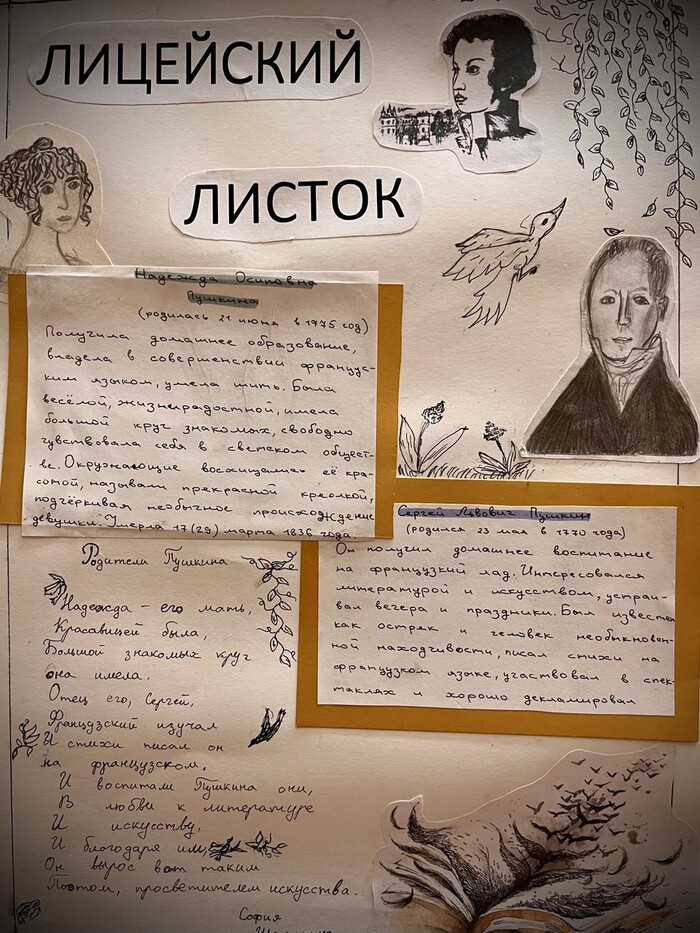 ЛИЦЕЙСКИЙ
ЛИСТОК
Надежда Осиповна
Пушкина
(родилась 21 июня в 1775 год)
Получила домашнее образование,
владела в совершенстве француз-
ким языком, умела шить. Была
весёлой, жизнерадостной, имела
большой круг знакомых, свободно
чувствовала себя в светском общест-
ве. Окружающие восхищались её кра-
сотой, называли прекрасной креолкой,
подчёркивая необычное происхождение
девушки. Умерла 17 (29) марта 1836 года.
Сергей Львович Пушкин
(родился 23 мая в 1770 года)
Он получил домашнее воспитание
на французкий лад. Интересовался
литературой и искусством, устраи-
вал вечера и праздники. Был известен
как остряк и человек необыкновен-
ной находчивости, писал стихи на
французком языке, участвовал в спек-
таклях и хорошо декламировал
Родители Пушкина
Надежда - его мать,
Красавицей была,
Большой знакомых круг
она имела.
Отец его, Сергей,
Французский изучал
И стихи писал он
на французском.
И воспитали Пушкина они,
В любви к литературе
И искусству,
И благодаря им,
Он вырос вот таким
Поэтом, просветителем искусства.
София